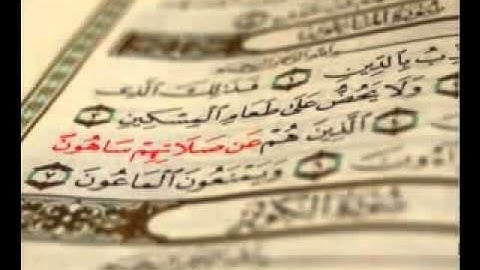 سُورَةُ المَاعُونِ
بِالدِّينِ ١ فَذَٰلِكَ الَّذِي
وَلَا يَحُضُّ عَلَىٰ طَعَامِ الْمِسْكِينِ ٣
٤ الَّذِينَ هُمْ عَن صَلَاتِهِمْ سَاهُونَ
٦ وَيَمْنَعُونَ الْمَاعُونَ ٧
سُورَةُ الكَوْثَرِ